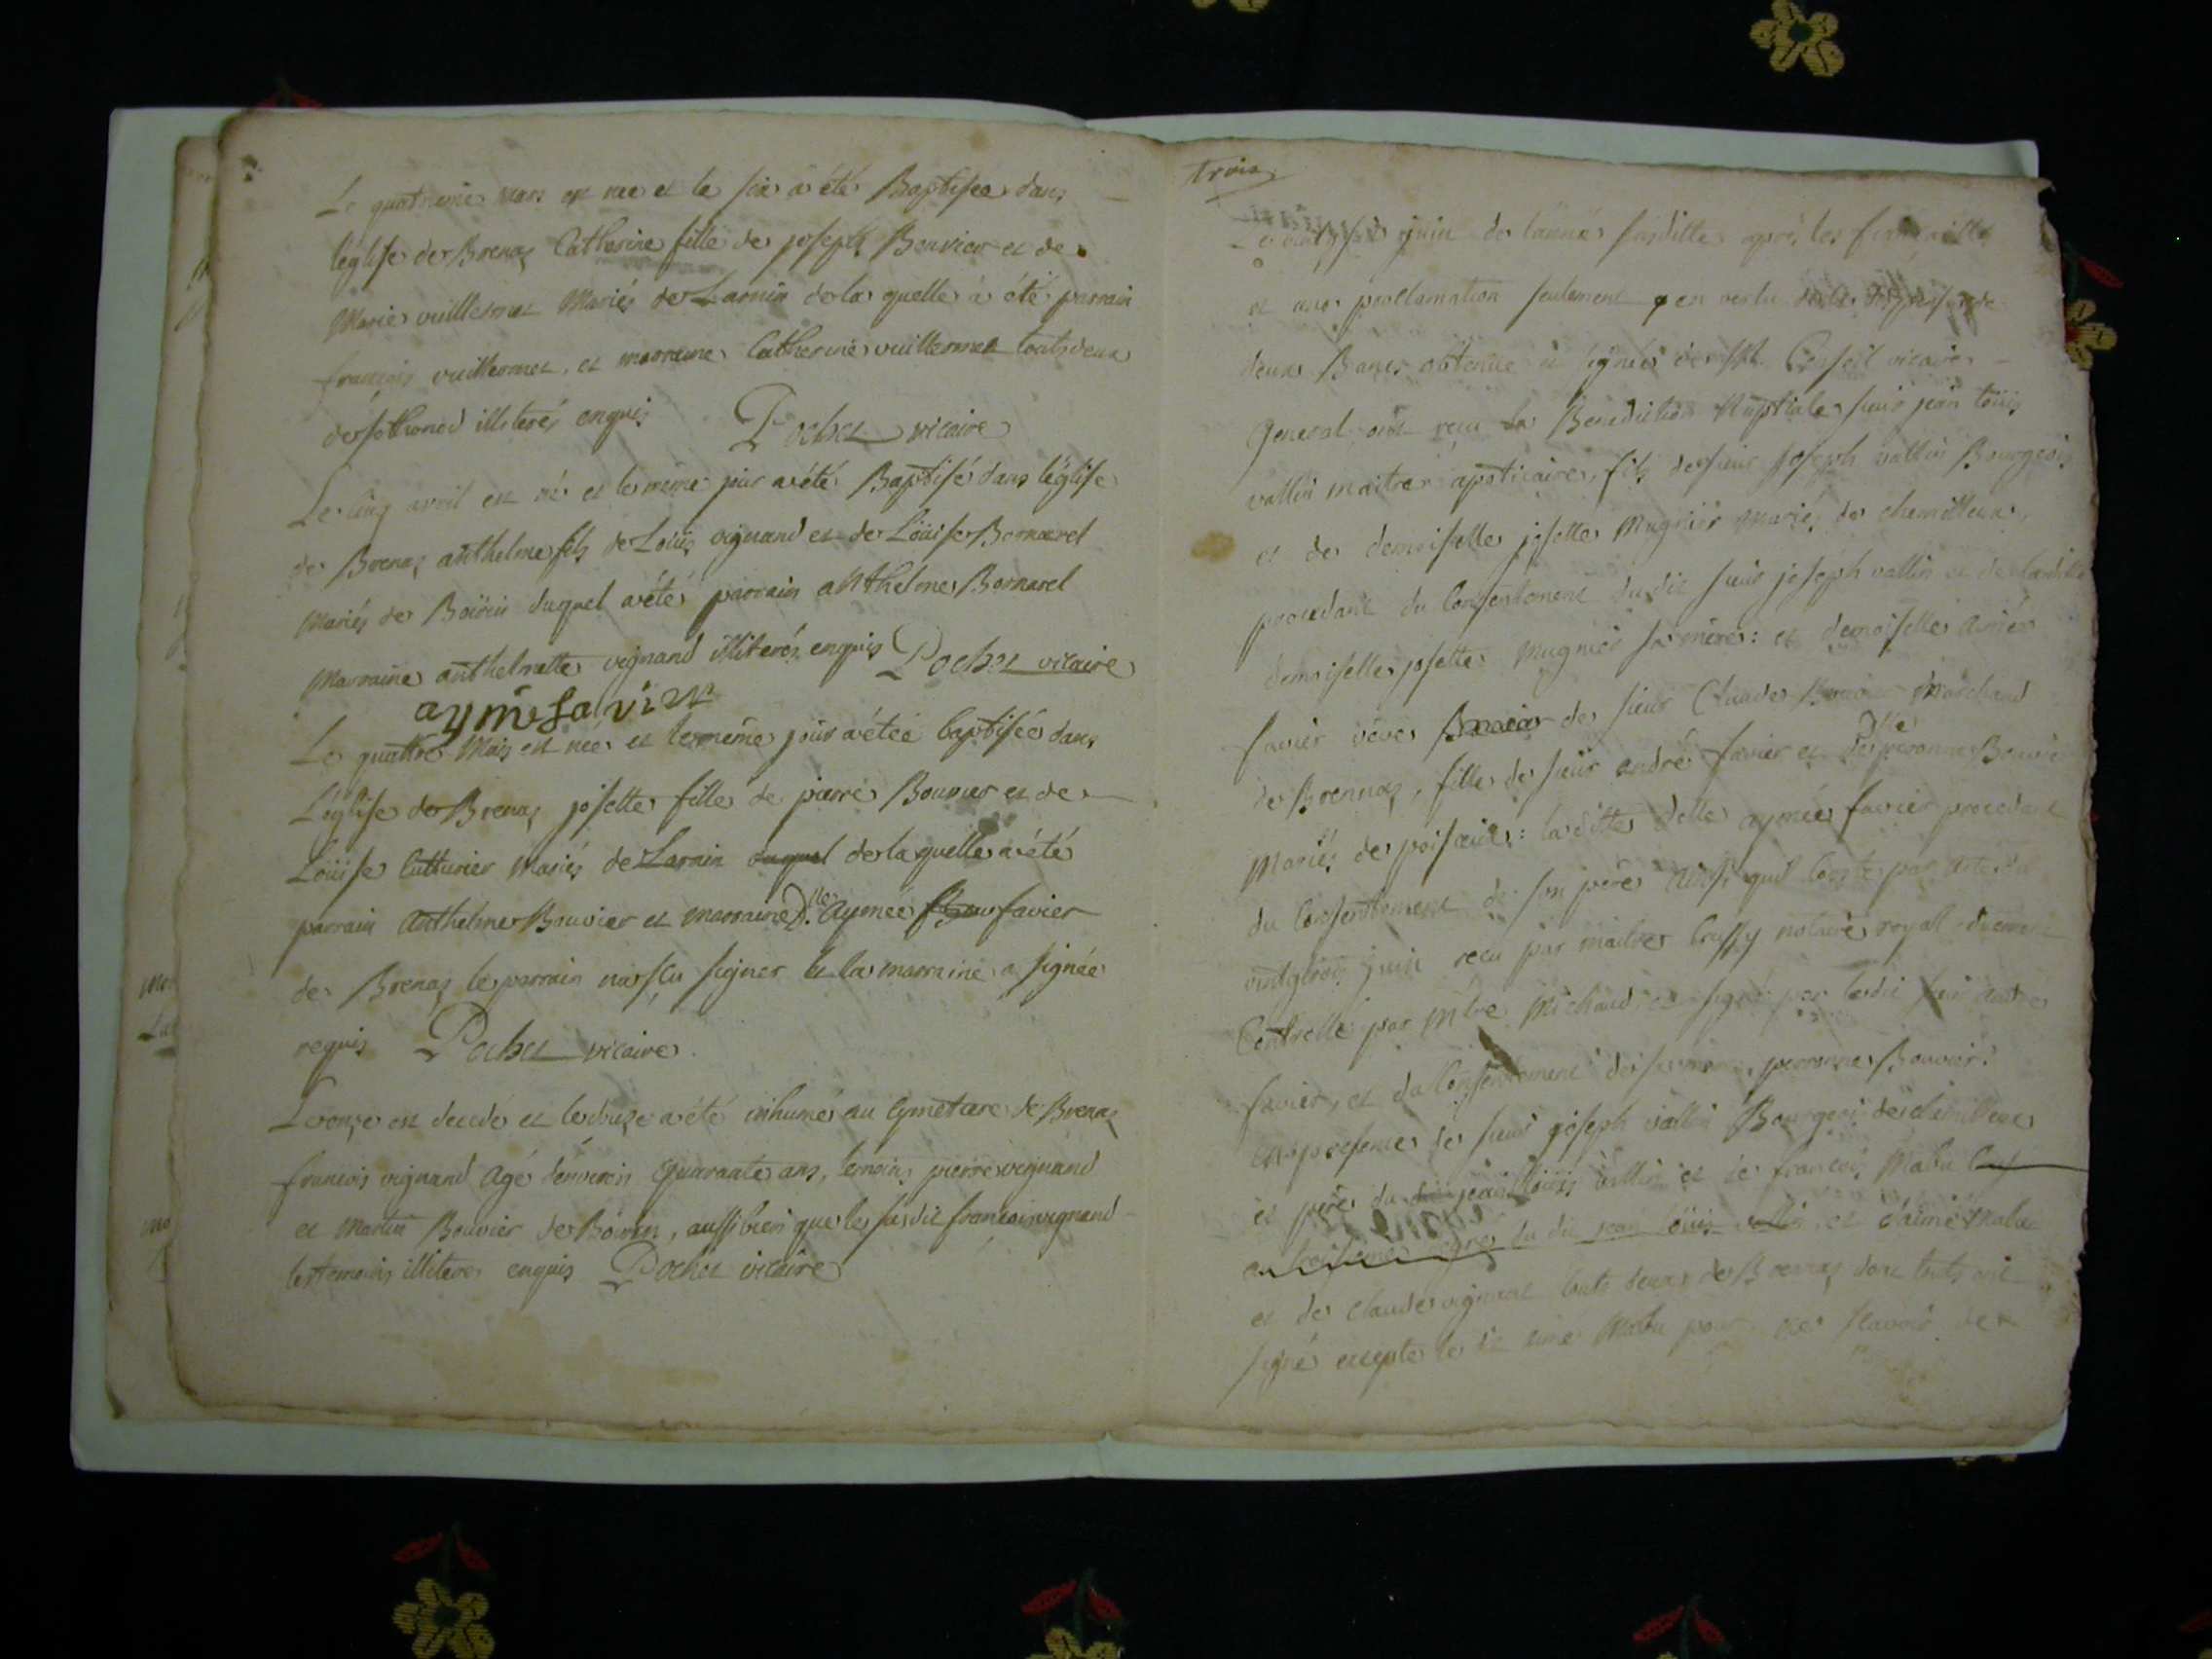 Le quatrieme mars est nee et le six a été Baptisee dans
l'églises de Brenas Catherine fille de joseph Bouvier et de
Marie vuillermet Mariés de Larnin de la quelle a été parrain
françois vuillermet, et marraine Catherine vuillermet touts deux
de sothonod illiterés enquis Pochet vicaire
Le cinq avril est né et le meme jour a été Baptisé dans l'église
de Brenas anthelme fils de Loüis vignand et de Loüise Bornarel
Mariés de Boürin duquel a été parrain anthelme Bornarel
Marraine anthelmette vignand illiterés enquis Pochet vicaire
aymé favier
Le quattre Mais est née et le meme jour a étéé baptisée dans
L'église de Brenas josette fille de pierre Bouvier et de
Loüise Cutturier Mariés de Larnin duquel de la quelle a été
parrain Anthelme Bouvier et marraine D.lle Aymée favier
de Brenas le parrain n'a sçu signer et la marraine a signée
requis Pochet vicaire.
Le onze est decedé et le douze a été inhumé au Cymetiere de Brenas
francois vignand Agé d'environ Quarante ans, temoins pierre vignand
et Martin Bouvier de Boürin, aussi bien que le susdit francois vignand
les temoins illiteres enquis Pochet vicaire
trois
juin de l'année susditte après les fiançailles
et une proclamation seulement en vertu de la dispense de
deux Bancs obtenüe et signée de Conseil vicaire
general ont reçu la Benediction Nuptiale sieur jean loüis
vallin maitre apoticaire, fils de sieur joseph vallin Bourgeois
et de demoiselle josette Mugnier Mariés de chemilleux
procedant du Consentement du dit sieur joseph vallin et de laditte
demoiselle josette Mugnier sa mere: et demoiselle aimée
favier veüve de sieur Claude Marchand
de Brennas, fille de sieur andré favier et de D.lle peronne Bouvier
Mariés de: laditte D.elle aymée favier procedant
du Consentement de son pere ainsi quil Conste par acte du
vingt trois juin recu par maitre Cussy notaire royal düement
Controllé par M.tre Michaud et signé par ledit sieur andré
favier, et du Consentement de sa mere peronne Bouvier.
en presence de sieur joseph vallin Bourgeois de chemilleux
et pere du dit jean loüis vallin et de francois Mabu
du dit jean loüis vallin et d'aimé Mabu
et de claude vignand touts deux de Brenas dont touts ont
signé excepté le dit aimé Mabu pour ne scavoir de